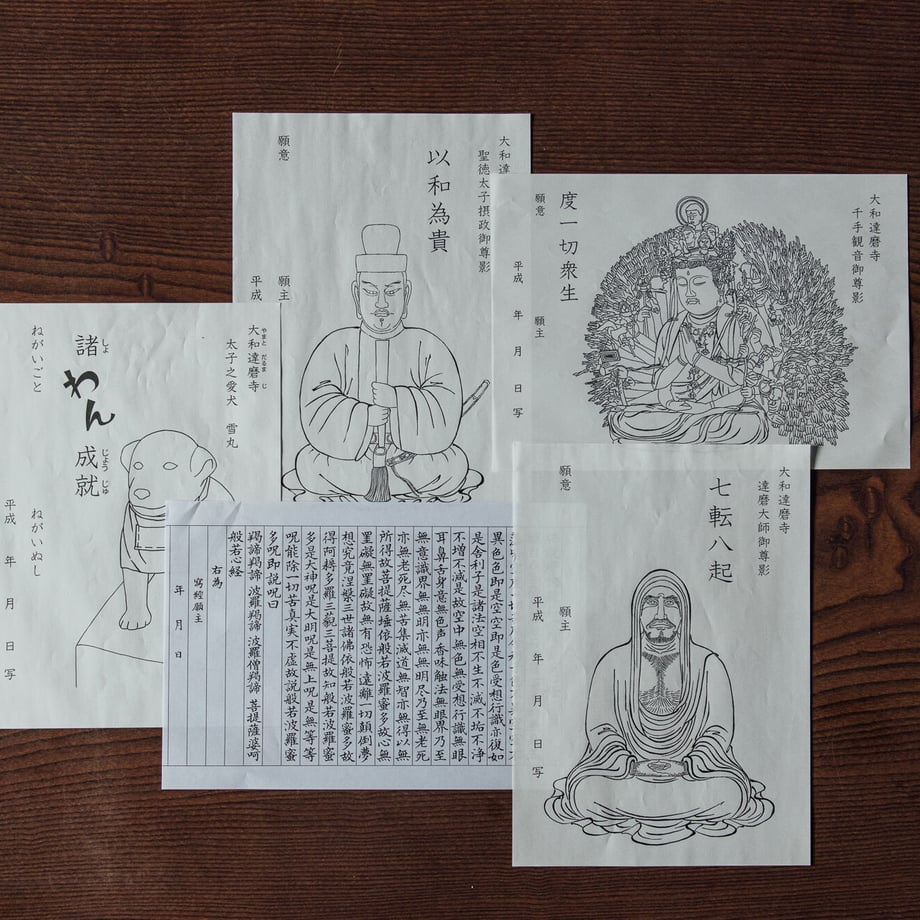 大和達
聖徳太子摂政御尊影
以和為貴
願意
願主
平成
大和達磨寺
千手観音御尊影
度一切衆生
願意
願主
平成 年 月 日 写
大和達磨寺
やまと だるま じ
太子之愛犬 雪丸
諸わん成就
しょ じょう じゅ
ねがいごと
ねがいぬし
平成 年 月 日 写
異色色即是空空即是色受想行識亦復如
是舍利子是諸法空相不生不滅不垢不浄
不増不減是故空中無色無受想行識無眼
耳鼻舌身意無色声香味触法無眼界乃至
無意識界無無明亦無無明尽乃至無老死
亦無老死尽無苦集滅道無智亦無得以無
所得故菩提薩埵依般若波羅蜜多故心無
罣礙無罣礙故無有恐怖遠離一切顛倒夢
想究竟涅槃三世諸佛依般若波羅蜜多故
得阿耨多羅三藐三菩提故知般若波羅蜜
多是大神呪是大明呪是無上呪是無等等
呪能除一切苦真実不虚故説般若波羅蜜
多呪即説呪曰
羯諦羯諦 波羅羯諦 波羅僧羯諦 菩提薩婆呵
般若心経
右為
寫経願主
年 月 日
大和達磨寺
達磨大師御尊影
七転八起
願意
願主
平成 年 月 日 写